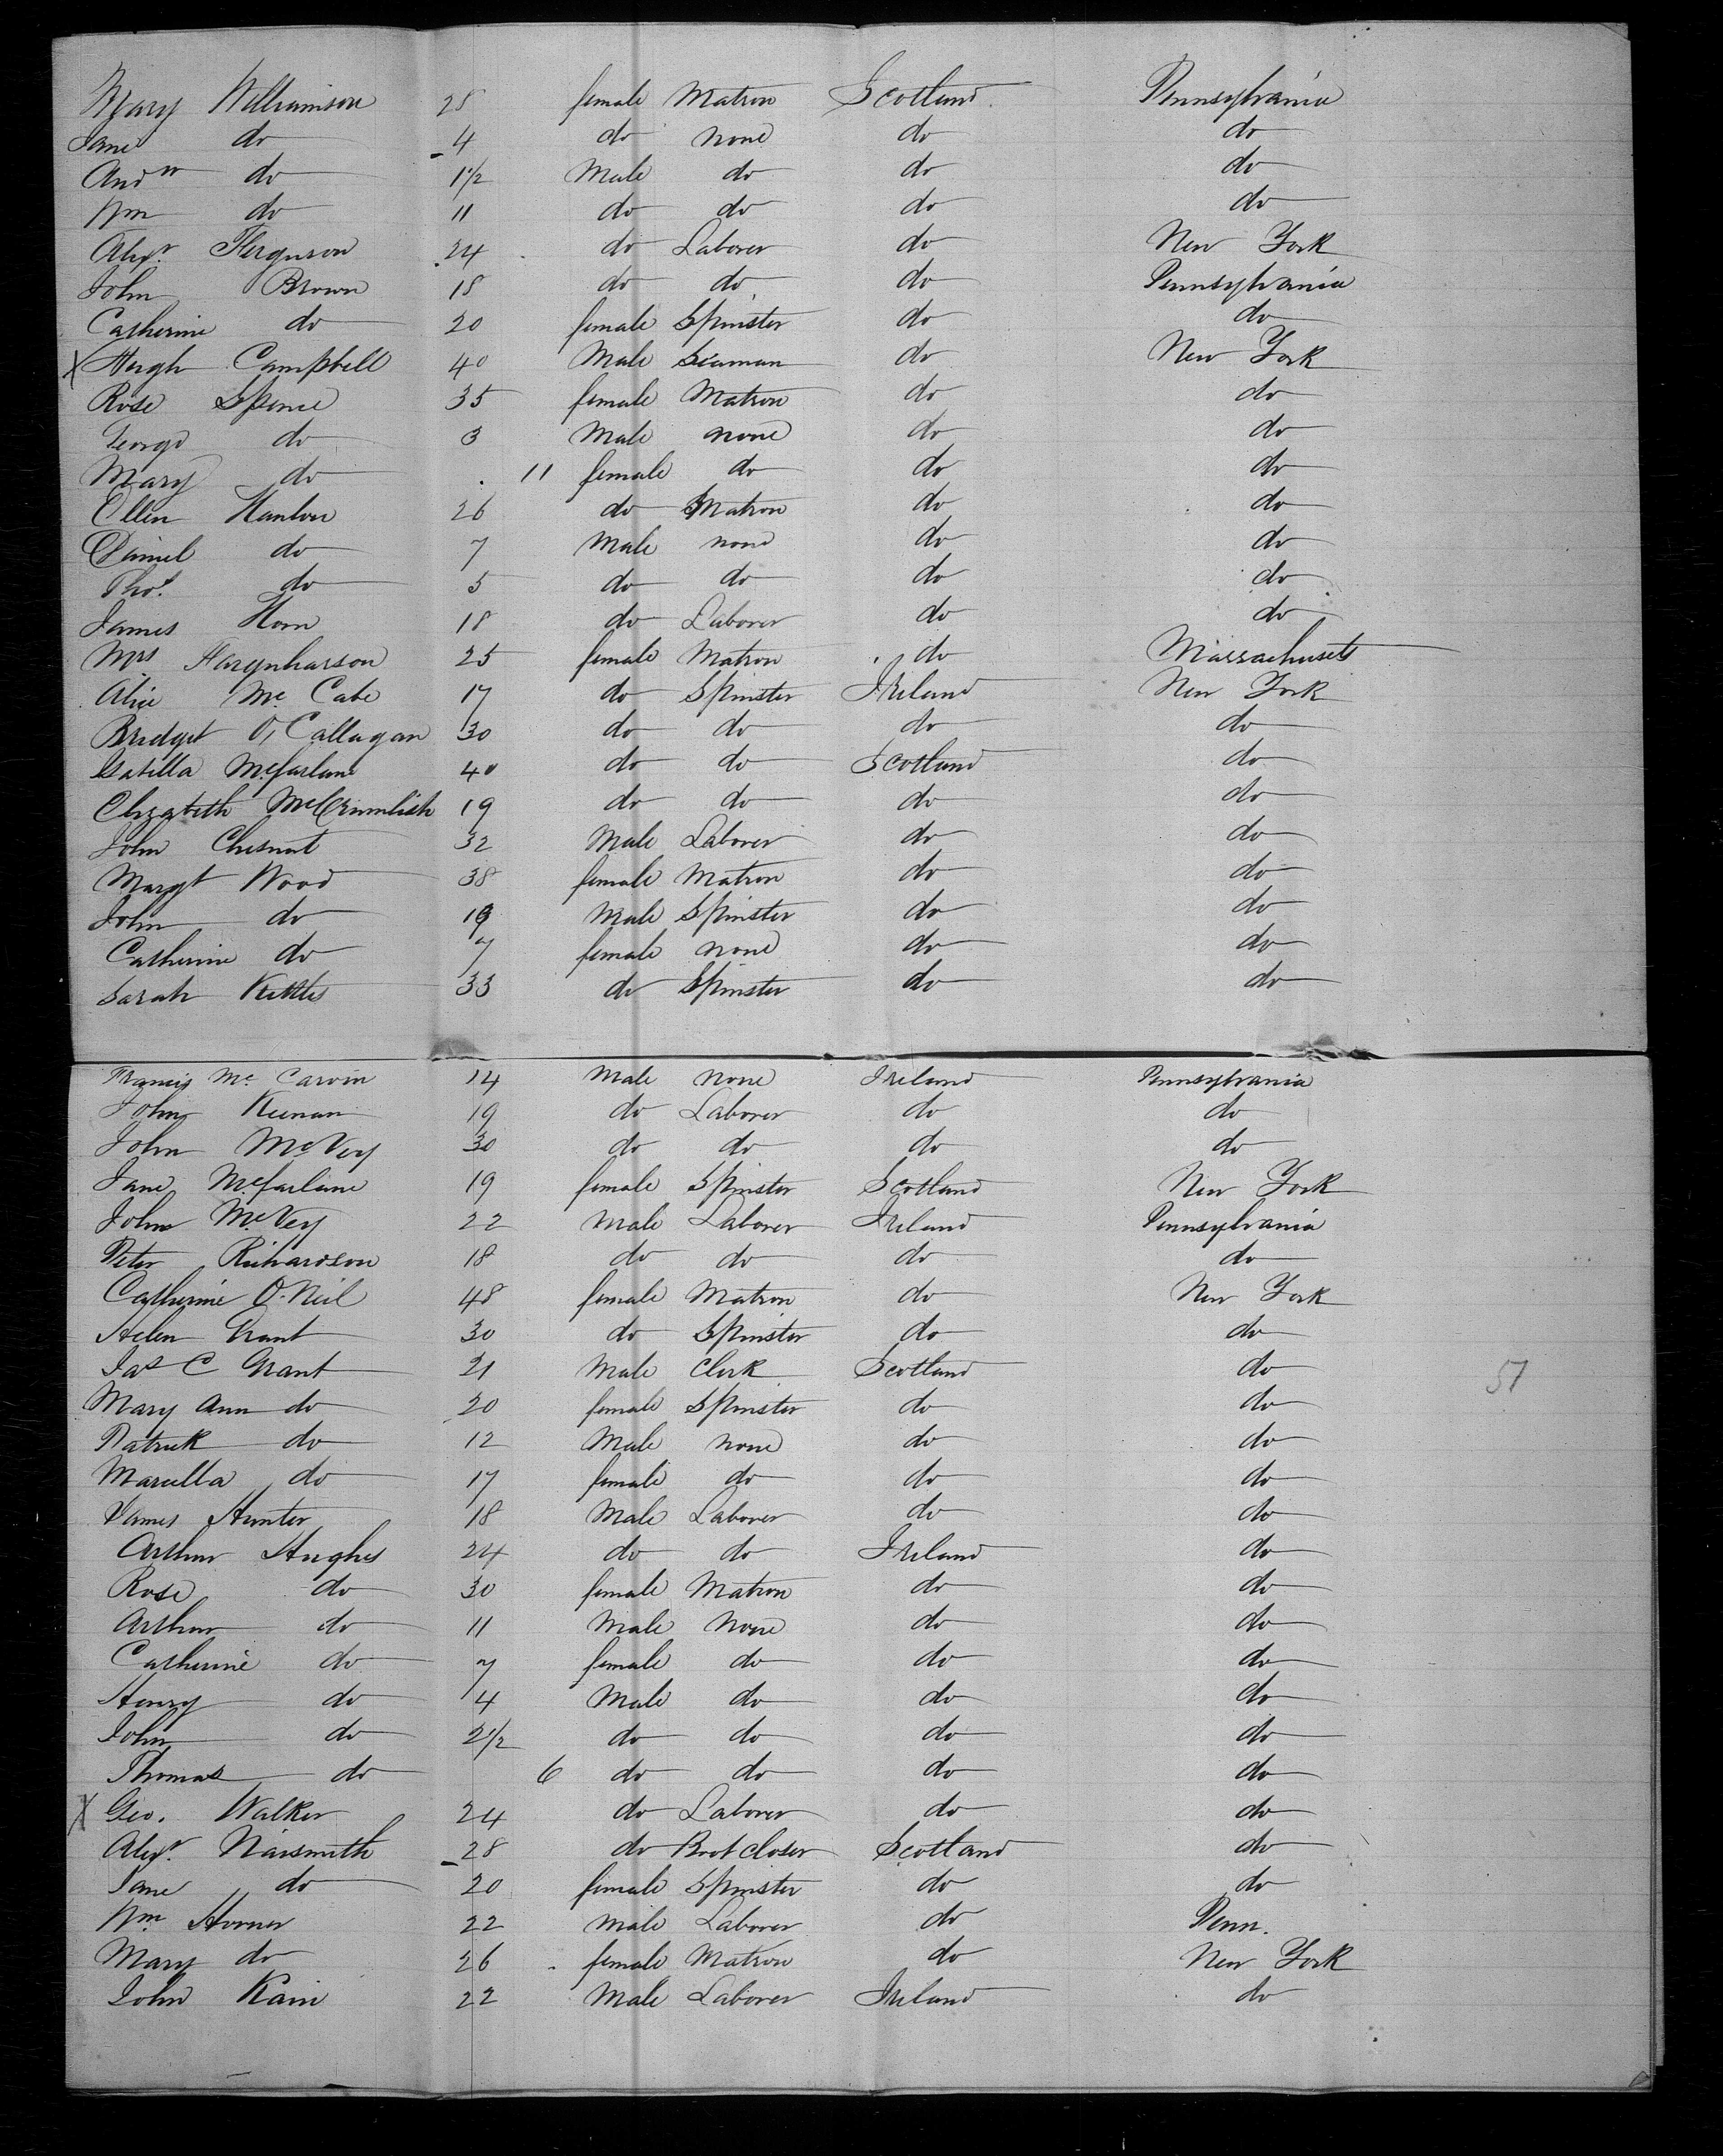 Mary Williamson 28 female Matron Scotland Pennsylvania
Jane do 4 do none do do
Andw do 1 1/2 Male do do do
Wm do 11 do do do do
Alexr. Ferguson 24 do Laborer do New York
John Brown 18 do do do Pennsylvania
Catherine do 20 female Spinster do do
X Hugh Campbell 40 Male Seaman do New York
Rose Spence 35 female Matron do do
George do 3 Male none do do
Mary do 11 female do do do
Ellen Hanlon 26 do Matron do do
Daniel do 7 Male none do do
Thos. do 5 do do do do
James Horn 18 do Laborer do do
Mrs Farqnharson 25 female Matron do Massachusets
Alice Mc Cabe 17 do Spinster Ireland New York
Bridget O, Callagan 30 do do do do
Isabella Mcfarlane 40 do do Scotland do
Elizabeth McCrumlish 19 do do do do
John Chesnut 32 Male Laborer do do
Margt Wood 38 female Matron do do
John do 19 Male Spinster do do
Catherine do 7 female none do do
Sarah Kettles 33 do Spinster do do
Francis Mc Carvin 14 Male none Ireland Pennsylvania
John Keenan 19 do Laborer do do
John McVey 30 do do do do
Jane Mcfarlane 19 female Spinster Scotland New York
John McVey 22 Male Laborer Ireland Pennsylvania
Peter Richardson 18 do do do do
Catherine O. Neil 48 female Matron do New York
Helen Grant 30 do Spinster do do
Jas C Grant 21 Male Clerk Scotland do
51
Mary Ann do 20 female Spinster do do
Patrick do 12 Male none do do
Marcella do 17 female do do do
James Hunter 18 Male Laborer do do
Arthur Hughes 24 do do Ireland do
Rose do 30 female Matron do do
Arthur do 11 Male None do do
Catherine do 7 female do do do
Henry do 4 Male do do do
John do 2 1/2 do do do do
Thomas do 6 do do do do
X Geo. Walker 24 do Laborer do do
Alexr. Naismith 28 do Boot closer Scotland do
Jane do 20 female Spinster do do
Wm Horner 22 male Laborer do Penn.
Mary do 26 female Matron do New York
John Kain 22 Male Laborer Ireland do